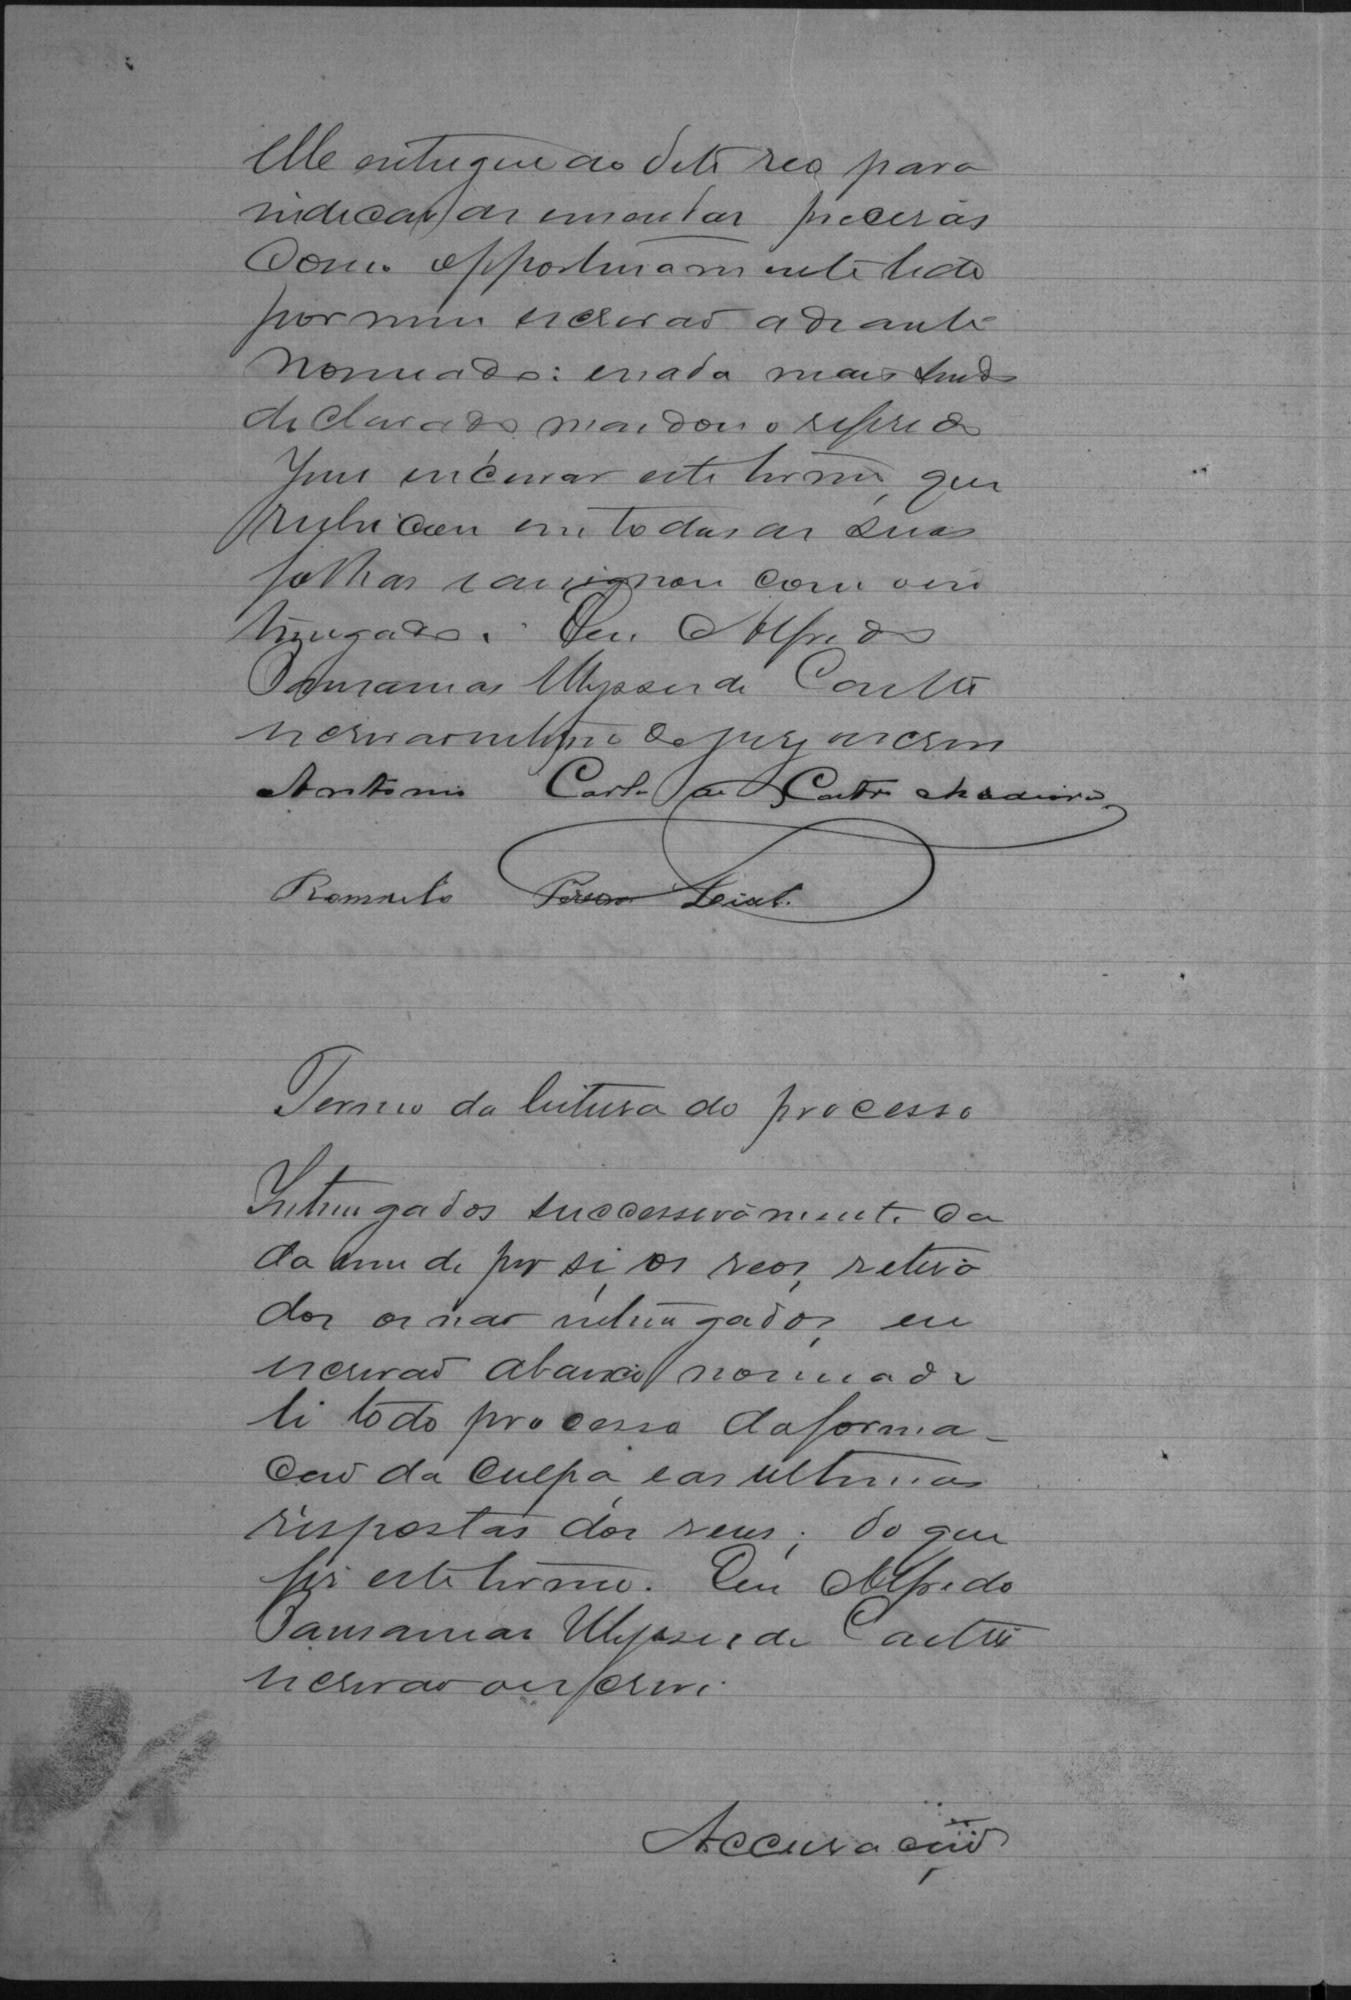 elle entregue ao dito reo para
indicar as emendas precisas
como opportunamente lido
por mim escrivaõ adiante
nomeado: e nada mais tendo
declarado mandou o referido
Juiz encerrar este termo, que
rubricou em todas as suas
folhas e assignou com o in
terrogado. Eu Alfredo
Pausanias Ulysses de Castro
escrivaõ interino do jury o escrevi
Antonio Carlos de Castro Madeira
Romualo Leial.
Termo da leitura do processo
Interrogados successivamente ca
da um de per si, os reos, retira
dos os naõ interrogados, eu
escrivaõ abaixo nomeado
li todo processo da forma-
caõ da culpa, e as ultimas
respostas dos reus; do que
fiz este termo. Eu Alfredo
Pausanias Ulysses de Castro
escrivaõ o escrevi.
Accusaçaõ